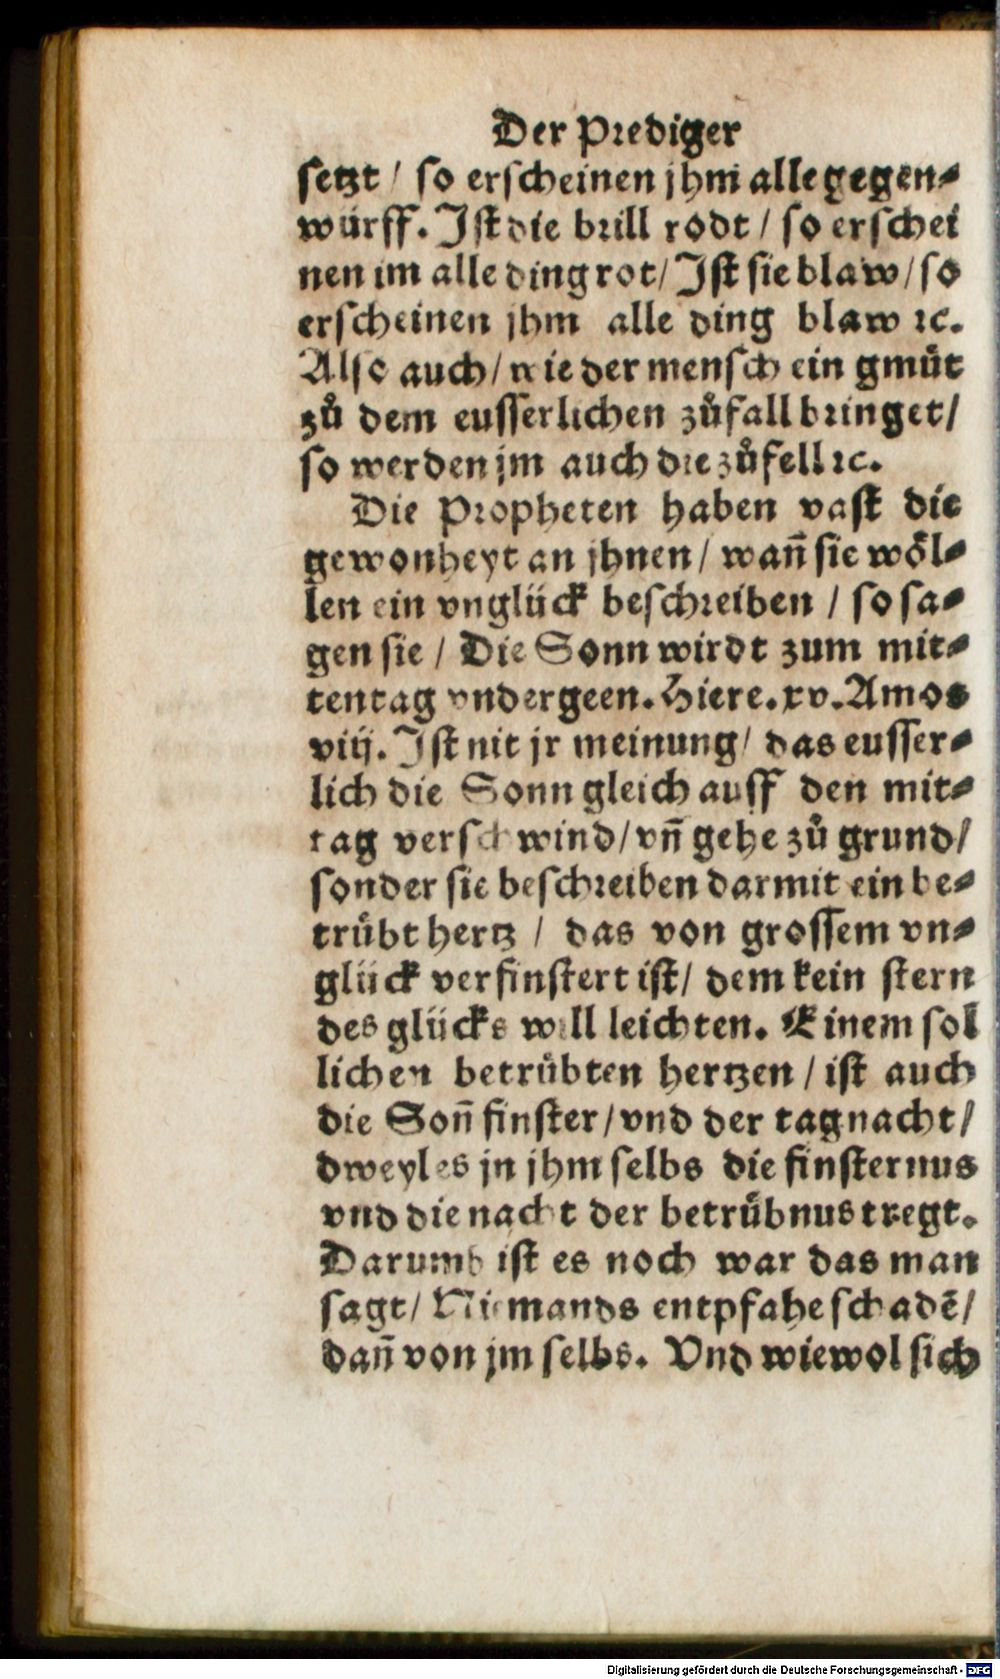 Der Prediger
setzt / so erscheinen jhm alle gegen⸗
würff. Ist die brill rodt / so erschei
nen im alle ding rot / Ist sie blaw / so
erscheinen jhm alle ding blaw ꝛc.
Also auch / wie der mensch ein gmuͤt
zuͦ dem eusserlichen zuͦfall bringet /
so werden jm auch die zuͦfell ꝛc.
Die Propheten haben vast die
gewonheyt an jhnen / wañ sie woͤl⸗
len ein vnglück beschreiben / so sa⸗
gen sie / Die Sonn wirdt zum mit⸗
tentag vndergeen. Hiere. xv. Amos
viij. Ist nit jr meinung / das eusser⸗
lich die Sonn gleich auff den mit⸗
tag verschwind / vñ gehe zuͦ grund /
sonder sie beschreiben darmit ein be⸗
truͤbt hertz / das von grossem vn⸗
glück verfinstert ist / dem kein stern
des glücks will leichten. Einem sol
lichen betruͤbten hertzen / ist auch
die Soñ finster / vnd der tag nacht /
dweyl es jn jhm selbs die finsternus
vnd die nacht der betruͤbnus tregt.
Darumb ist es noch war das man
sagt / Niemands entpfahe schadẽ /
dañ von jm selbs. Vnd wiewol sich
Digitalisierung gefördert durch die Deutsche Forschungsgemeinschaft - DFG